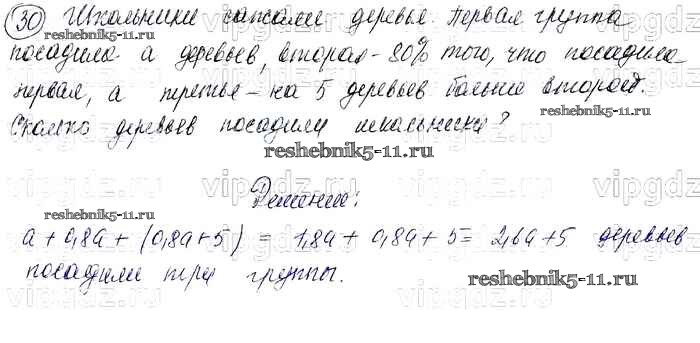 30) Школьники сажали деревья. Первая группа
reshebnik5-11.ru
посадила а деревьев, вторая - 80% того, что посадила
первая, а третья - на 5 деревьев больше второй.
reshebnik5-11.ru
Сколько деревьев посадили школьники?
reshebnik5-11.ru
vipgdz.ru
Решение:
reshebnik5-11.ru
а + 0,8а + (0,8а + 5) = 1,8а + 0,8а + 5 = 2,6а + 5 деревьев
посадили три группы.
reshebnik5-11.ru